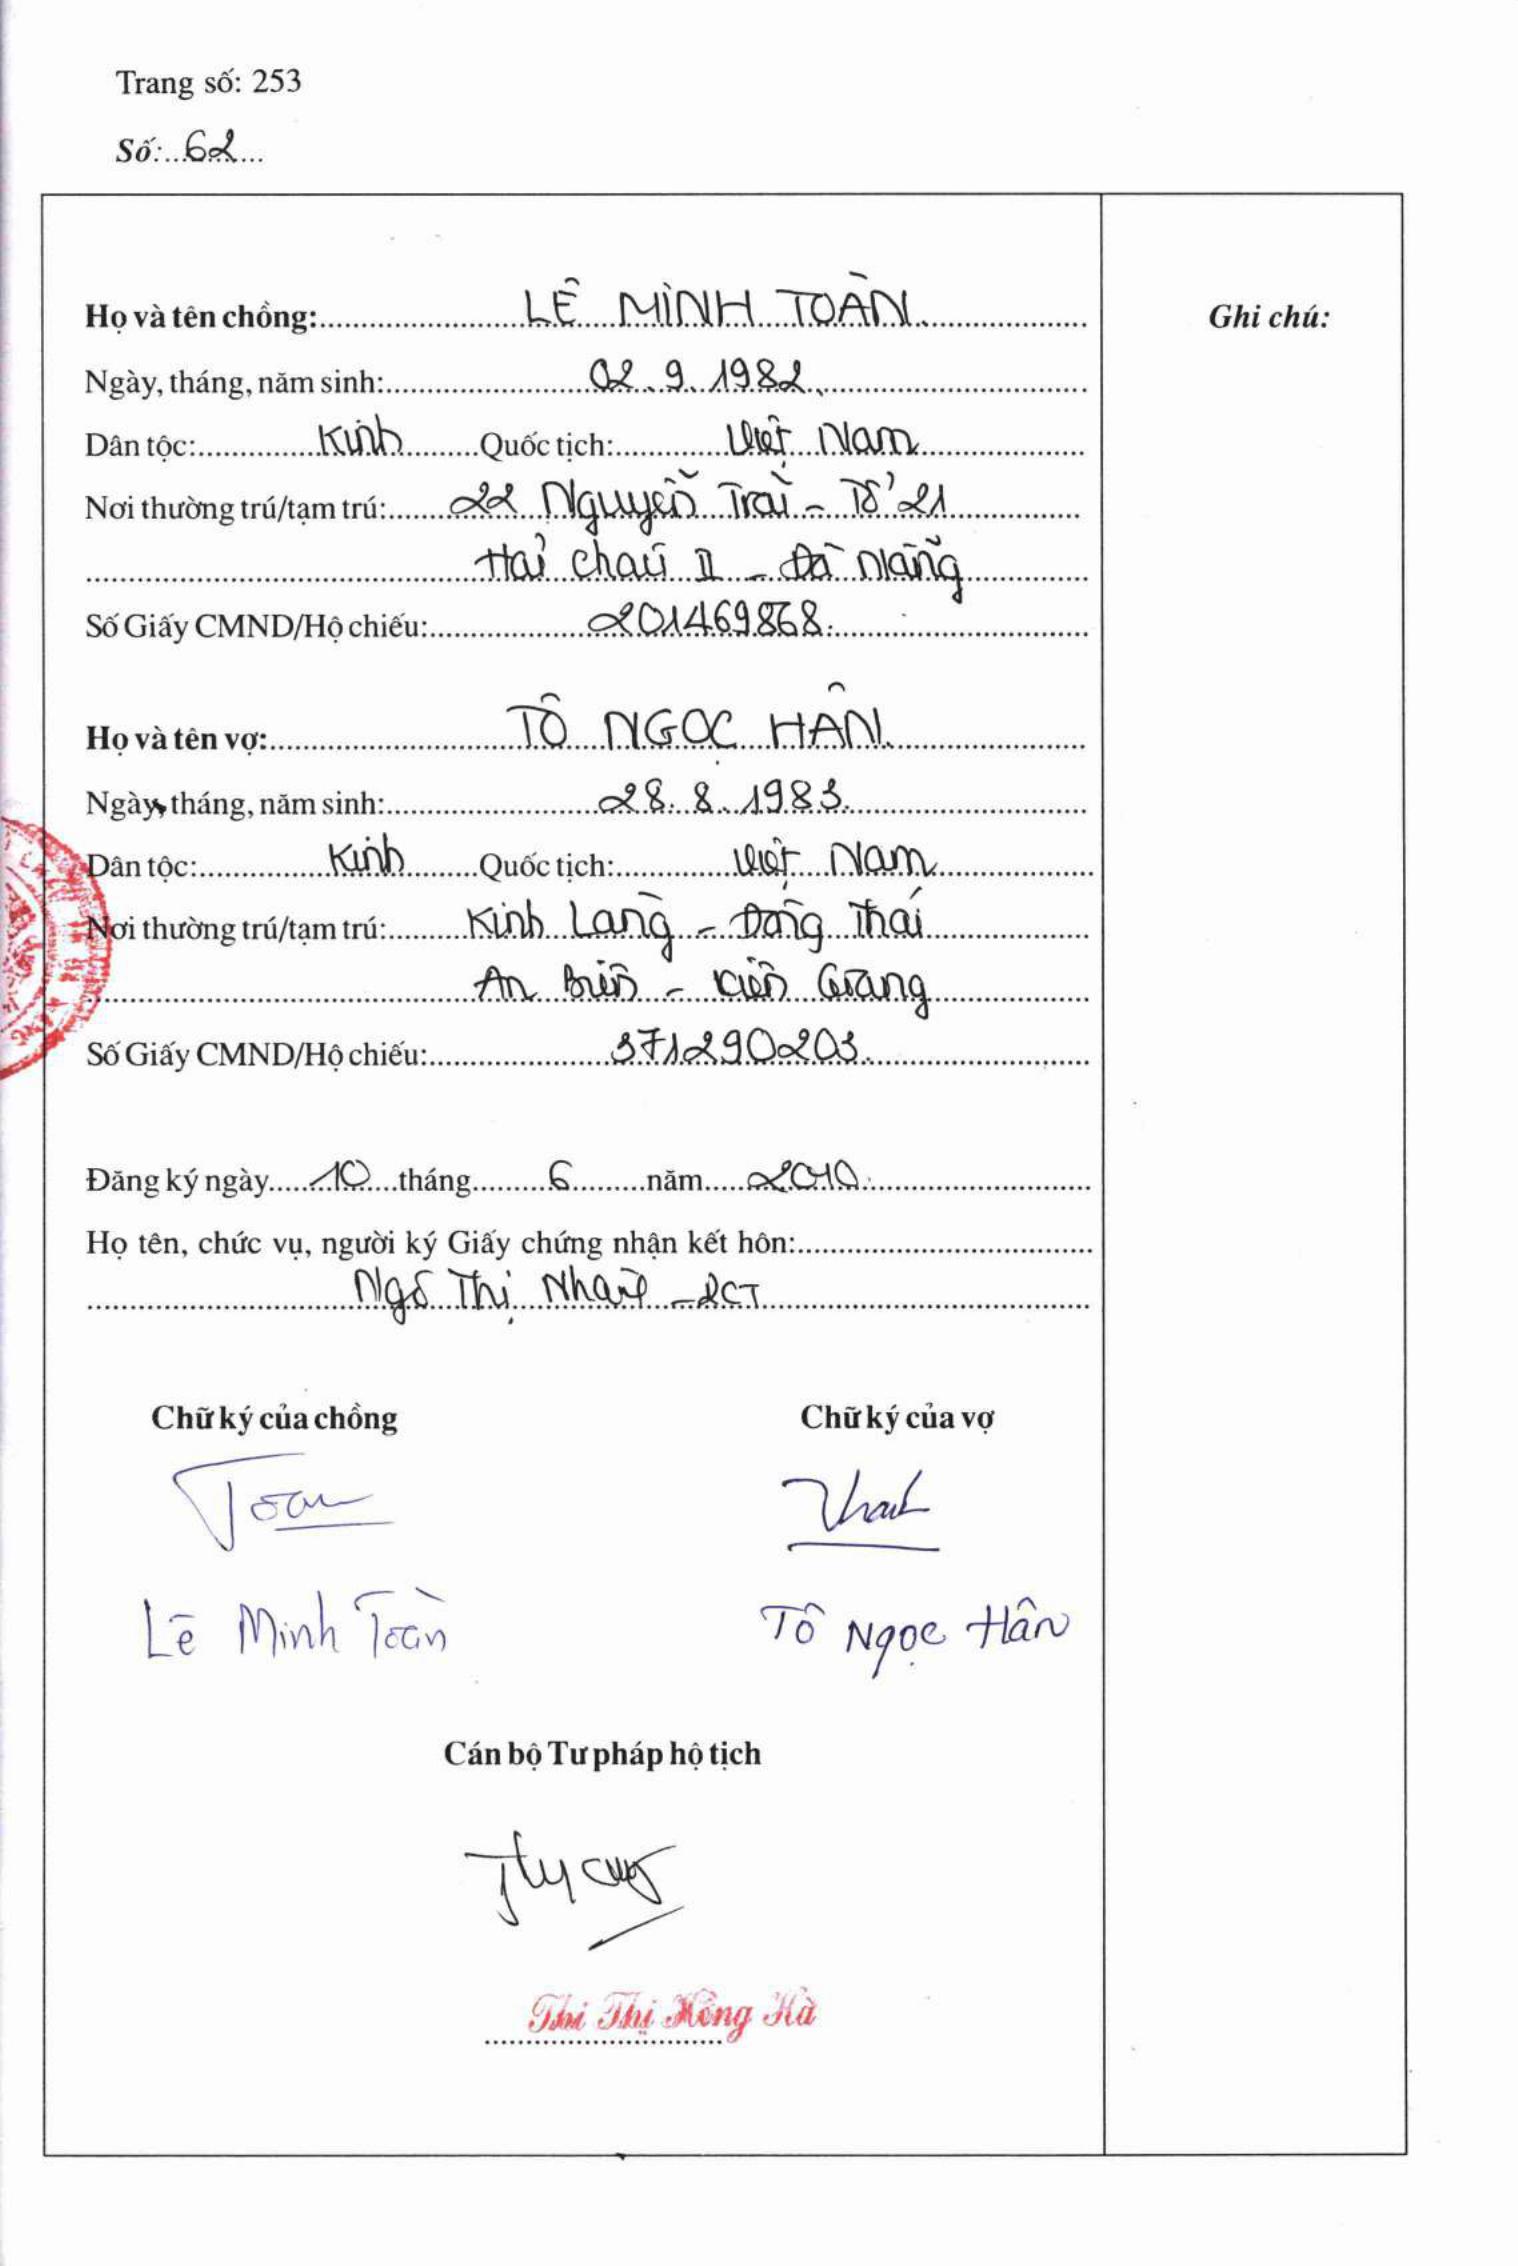 Trang số: 253
Số: 62
Họ và tên chồng: LÊ MINH TOÀN
Ghi chú:
Ngày, tháng, năm sinh: 02.9.1982
Dân tộc: Kinh Quốc tịch: Việt Nam
Nơi thường trú/tạm trú: 22 Nguyễn Trãi - Tổ 21
Hải Châu II - Đà Nẵng
Số Giấy CMND/Hộ chiếu: 201469868
Họ và tên vợ: TÔ NGỌC HÂN
Ngày, tháng, năm sinh: 28.8.1983
Dân tộc: Kinh Quốc tịch: Việt Nam
Nơi thường trú/tạm trú: Kinh Làng - Đông Thái
An Biên - Kiên Giang
Số Giấy CMND/Hộ chiếu: 371290203
Đăng ký ngày 10 tháng 6 năm 2010
Họ tên, chức vụ, người ký Giấy chứng nhận kết hôn:
Ngô Thị - PCT
Chữ ký của chồng
Chữ ký của vợ
Toàn
Lê Minh Toàn
Tô Ngọc Hân
Cán bộ Tư pháp hộ tịch
Thi Thị Hồng Hà